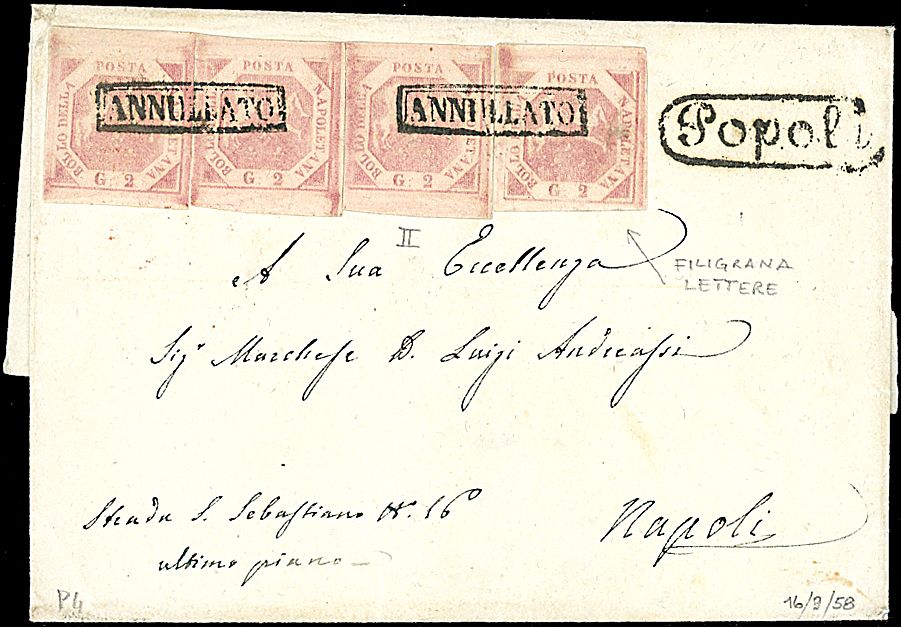 POSTA POSTA POSTA POSTA
BOLLO DELLA NAPOLETANA BOLLO DELLA NAPOLETANA BOLLO DELLA NAPOLETANA BOLLO DELLA NAPOLETANA
ANNULLATO ANNULLATO
G. 2 G. 2 G. 2 G. 2
Popoli
II
FILIGRANA
LETTERE
A Sua Eccellenza
Sigr Marchese D. Luigi Andreassi
Strada S. Sebastiano N. 16
ultimo piano
Napoli
P4
16/9/58